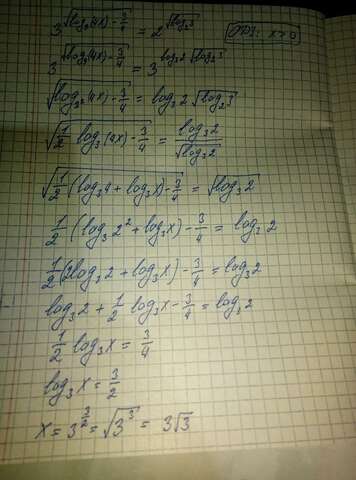 3^{\sqrt{\log_{3^2}(4x)-\frac{3}{4}}} = 2^{\sqrt{\log_2 3}} ОДЗ: x>0
3^{\sqrt{\log_{3^2}(4x)-\frac{3}{4}}} = 3^{\log_3 2 \sqrt{\log_2 3}}
\sqrt{\log_{3^2}(4x)-\frac{3}{4}} = \log_3 2 \sqrt{\log_2 3}
\sqrt{\frac{1}{2}\log_3(4x)-\frac{3}{4}} = \frac{\log_3 2}{\sqrt{\log_3 2}}
\sqrt{\frac{1}{2}(\log_3 4+\log_3 x)-\frac{3}{4}} = \sqrt{\log_3 2}
\frac{1}{2}(\log_3 2^2+\log_3 x)-\frac{3}{4} = \log_3 2
\frac{1}{2}(2\log_3 2+\log_3 x)-\frac{3}{4} = \log_3 2
\log_3 2+\frac{1}{2}\log_3 x-\frac{3}{4} = \log_3 2
\frac{1}{2}\log_3 x = \frac{3}{4}
\log_3 x = \frac{3}{2}
x = 3^{\frac{3}{2}} = \sqrt{3^3} = 3\sqrt{3}